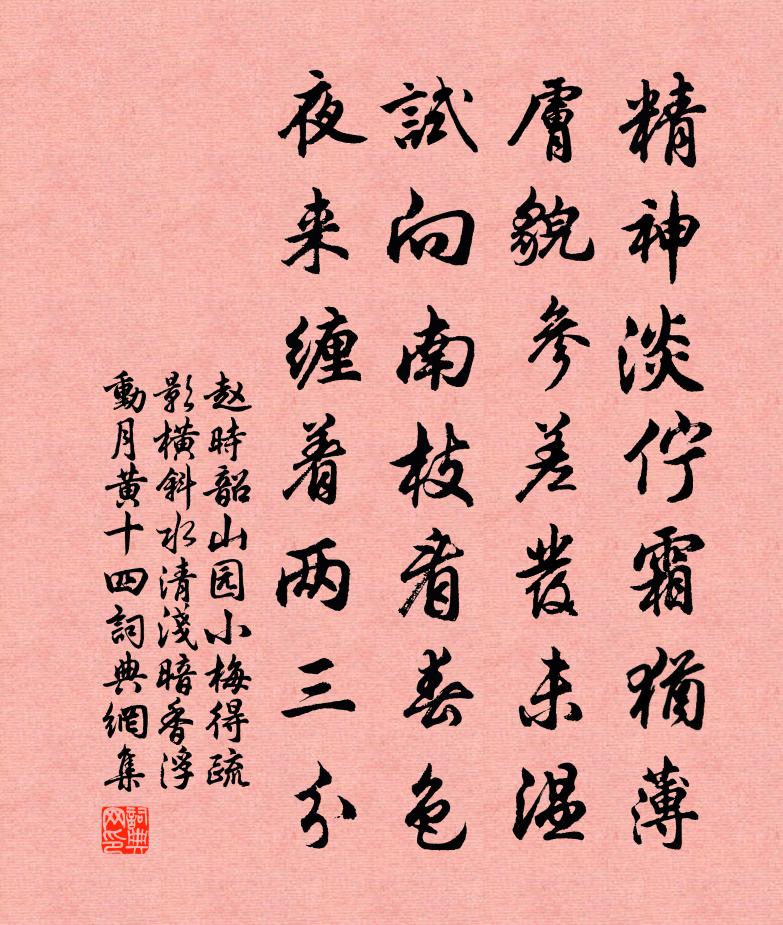 精神淡佇霜猶薄
膚貌參差發未温
試向南枝看春色
夜来纏着两三分
赵時韶山园小梅得疏
影横斜水清淺暗香浮
動月黄十四詞典網集
詞典网印